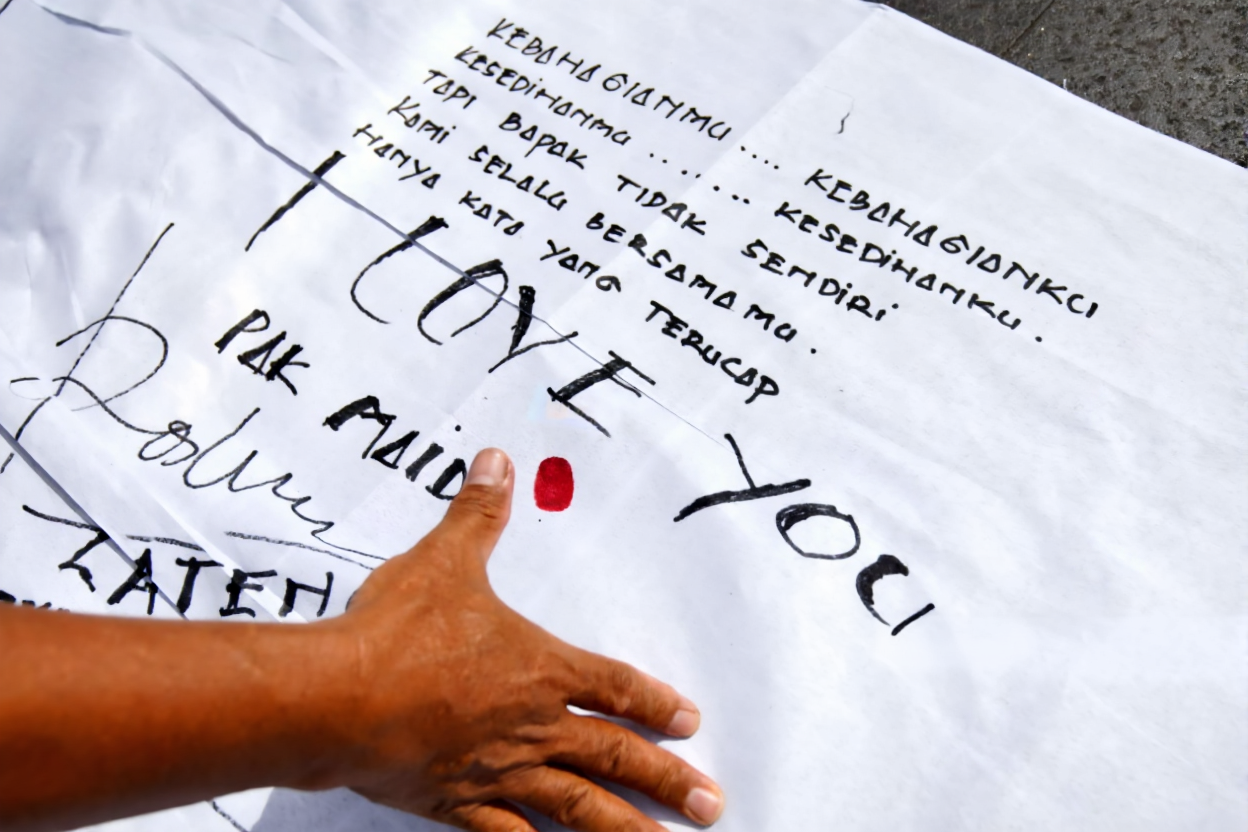 KEBAHAGIANMU .... KEBAHAGIANKU
KESEDIHANMU ....... KESEDIHANKU.
TAPI BAPAK TIDAK SENDIRI
KAMI SELALU BERSAMAMU.
HANYA KATA YANG TERUCAP
I LOVE YOU
PAK MAID